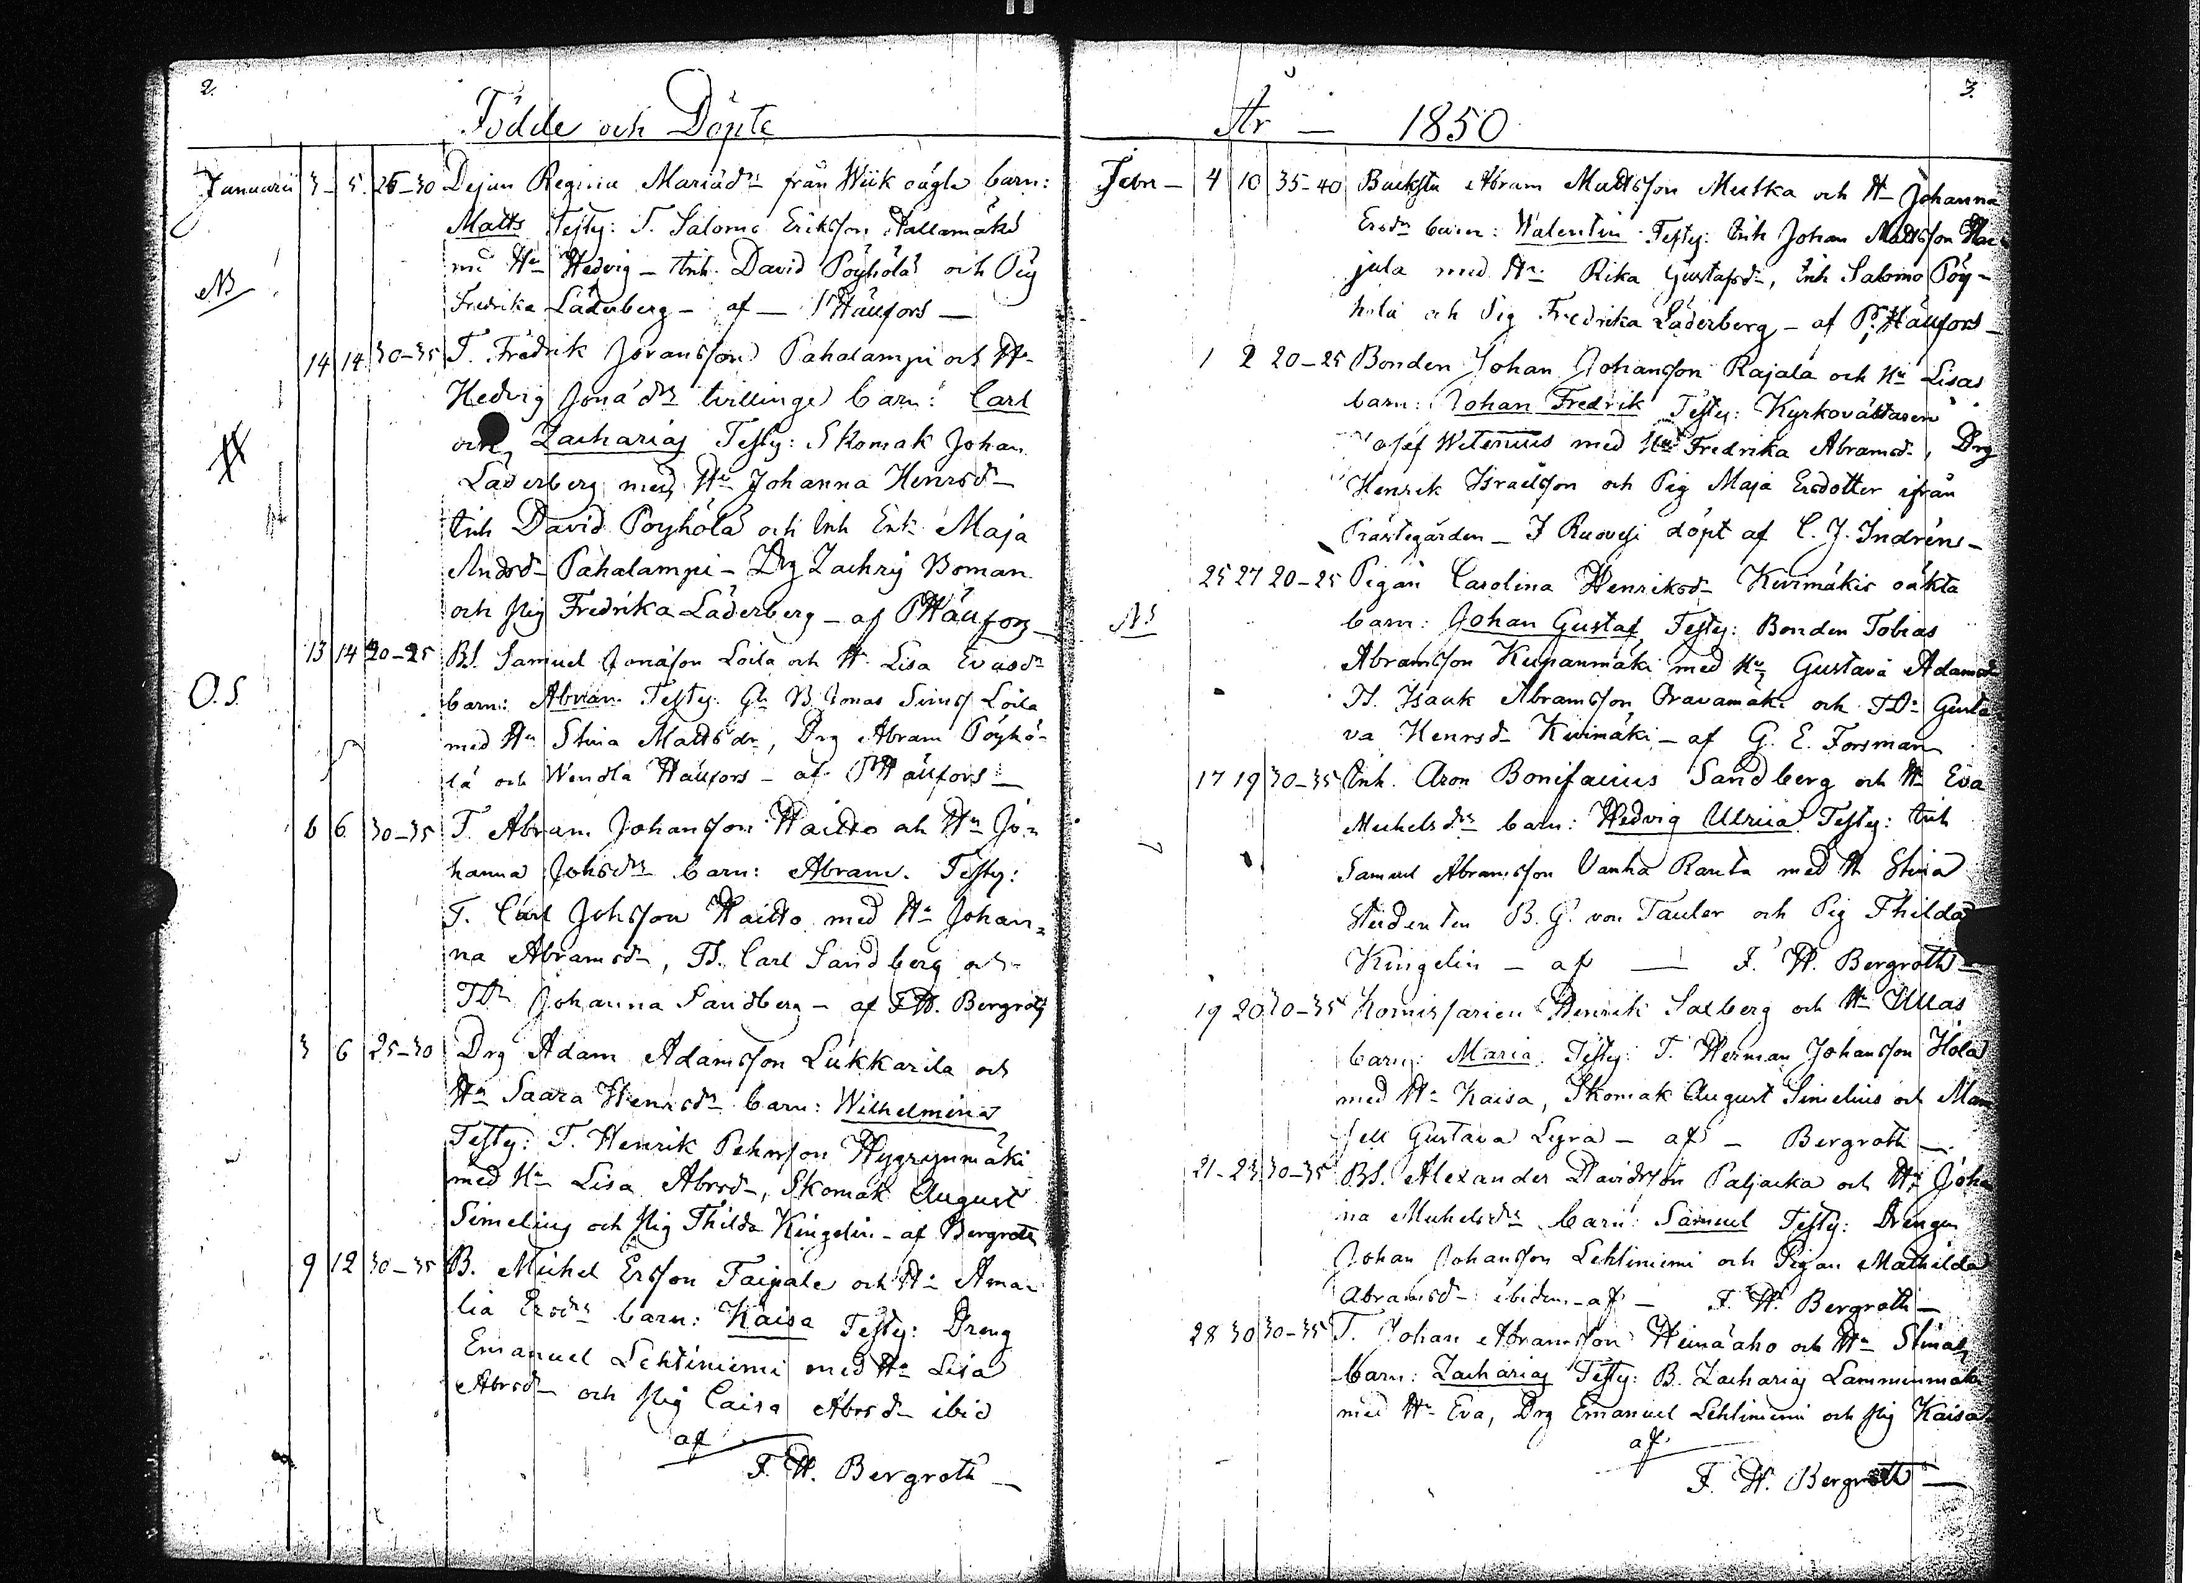 2.
Födde och Döpte
Januarii 3 5 25-30 Dejan Regina Mariädr från Wiik oägta barn:
Matts Testy: T. Salomo Eriksson Hallamäki
NB med Hu Hedvig - Inh. David Pöyhölä och Pig
Fredrika Läderberg - af - P Häufors -
14 14 30-35 T. Fredrik Jöransson Pahalampi och Hu
Hedvig Jonädr tvillinge barn: Carl
och Zacharias Testy: Skomak Johan
Läderberg med Hu Johanna Henrsd-
Inh David Pöyhölä och Inh Enk: Maja
Andsd- Pahalampi - Drg Zachris Boman
och Pig Fredrika Läderberg - af P Häufors -
13 14 20-25 Bs. Samuel Jonasson Loila och H. Lisa Evasdr
O.S. barn: Abram Testy: Gl. B. Jonas Loila
med Hu Stina Mattsdr, Drg Abram Pöyhö-
lä och Wendla Häufors - af P Häufors -
6 6 30-35 T. Abram Johansson Haitto och Hu Jo=
hanna Johsdr barn: Abram. Testy:
T. Carl Johsson Haitto med Hu Johan=
na Abramsd-, Ts. Carl Sandberg och
TDr Johanna Sandberg - af F. H. Bergroth
3 6 25-30 Drg Adam Adamsson Lukkarila och
Hu Saara Henrsdr barn: Wilhelmina
Testy: T. Henrik Pehrsson Hygrynmäki
med Hu Lisa Abrsd-, Skomak August
Simelius och Pig Thilda Kingelin - af Bergroth
9 12 30-35 B. Michel Ersson Taipale och Hu Ama-
lia Ersdr barn: Kaisa Testy: Dreng
Emanuel Lehtiniemi med Hu Lisa
Abrsd- och Pig Caisa Abrsd- ibid
af
F. H. Bergroth -
3.
År - 1850
Febr - 4 10 35-40 Backstu Abram Mattsson Mutka och Hu Johanna
Ersdr barn: Walentin Testy: Inh Johan Mattsson
jula med Hu Rika Gustafsd-, Inh Salomo Pöy-
hölä och Pig Fredrika Läderberg - af P. Häufors -
1 2 20-25 Bonden Johan Johansson Rajala och Hu Lisas
barn: Johan Fredrik Testy: Kyrkoväktaren
Josef Wetenius med Hu Fredrika Abramsd-, Drg
Henrik Israelsson och Pig Maja Ersdotter ifrån
Prästegården - I Ruovesi döpt af C. J. Indréns -
25 27 20-25 Pigan Carolina Henriksd- Kivimäkis oäkta
barn: Johan Gustaf Testy: Bonden Tobias
Abramsson Kumpanmäki med Hu Gustava Adamsd
Ts. Isaak Abramsson Oravamäki och TDr Gusta
va Henrsd- Kivimäki - af G. E. Forsman
17 19 30-35 Inh. Aron Bonifacius Sandberg och Hu Eva
Michelsdr barn: Hedvig Ulrica Testy: Inh
Samuel Abramsson Vanha Ranta med Hu Stina
Studenten B. G. von Tauler och Pig Thilda
Kingelin - af - F. H. Bergroth -
19 20 30-35 Komissarien Henrik Salberg och Hu Ullas
barn: Maria. Testy: T. Herman Johansson Hölä
med Hu Kaisa, Skomak August Simelius och Mam
sell Gustava Lyra - af - Bergroth -
21 23 30-35 Bs. Alexander Davidsson Paljacka och Hu Joha
na Michelsdr barn: Samuel Testy: Drengen
Johan Johansson Lehtiniemi och Pigan Mathilda
Abramsd- ibidem - af - F. H. Bergroth -
28 30 30-35 T. Johan Abramsson Heinäaho och Hu Stinas
barn: Zacharias Testy: B. Zacharias Lamminmäki
med Hu Eva, Drg Emanuel Lehtiniemi och Pig Kaisa
af
F. H. Bergroth -